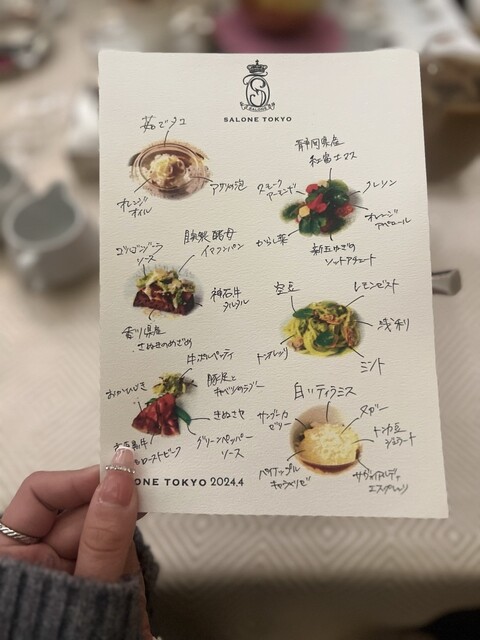 SALONE
SALONE TOKYO
茹でタコ
アサリの泡
オレンジ
オイル
静岡県産
紅富士マス
スモーク
アーモンド
クレソン
オレンジ
アペロール
からし菜
新玉ねぎの
ソットアチェート
自家製酵母
イマランパン
ゴルゴンゾーラ
ソース
神石牛
タルタル
香川県産
さぬきのめざめ
空豆
レモンゼスト
浅利
トンナレッリ
ミント
牛ポルペッティ
豚足と
おかひじき
きぬさや
グリーンペッパー
ソース
ローストビーフ
白いティラミス
サンブーカ
ゼリー
ヌガー
トンカ豆
ジェラート
パイナップル
キャラメリゼ
サヴォイアルディ
エスプレッソ
ONE TOKYO 2024.4